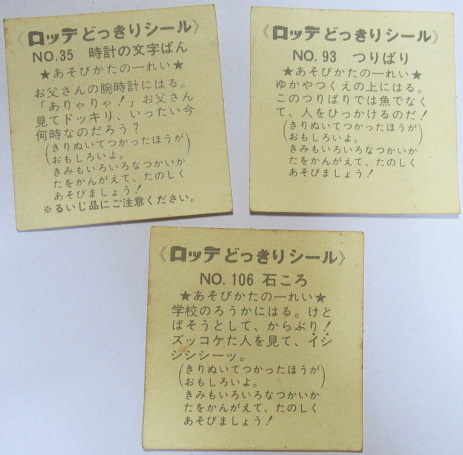 《ロッテどっきりシール》
NO.35 時計の文字ばん
★あそびかたの一れい★
お父さんの腕時計にはる。
「ありゃりゃ！」お父さん
見てドッキリ、いったい今
何時なのだろう？
(きりぬいてつかったほうが
おもしろいよ。)
きみもいろいろなつかいか
たをかんがえて、たのしく
あそびましょう！
※るいじ品にご注意ください。
《ロッテどっきりシール》
NO.93 つりばり
★あそびかたの一れい★
ゆかやつくえの上にはる。
このつりばりでは魚でなく
て、人をひっかけるのだ！
(きりぬいてつかったほうが
おもしろいよ。)
きみもいろいろなつかいか
たをかんがえて、たのしく
あそびましょう！
《ロッテどっきりシール》
NO.106 石ころ
★あそびかたの一れい★
学校のろうかにはる。けと
ばそうとして、からぶり！
ズッコケた人を見て、イシ
シシシーッ。
(きりぬいてつかったほうが
おもしろいよ。)
きみもいろいろなつかいか
たをかんがえて、たのしく
あそびましょう！